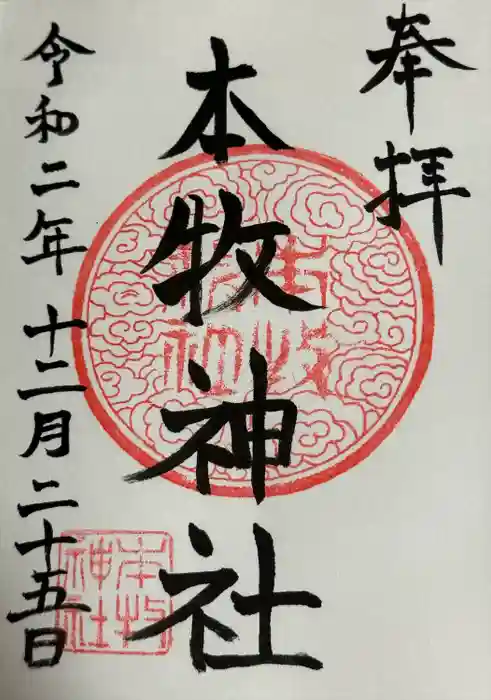 奉拝
本牧神社
令和二年十二月二十五日
本牧
神社
本牧
神社